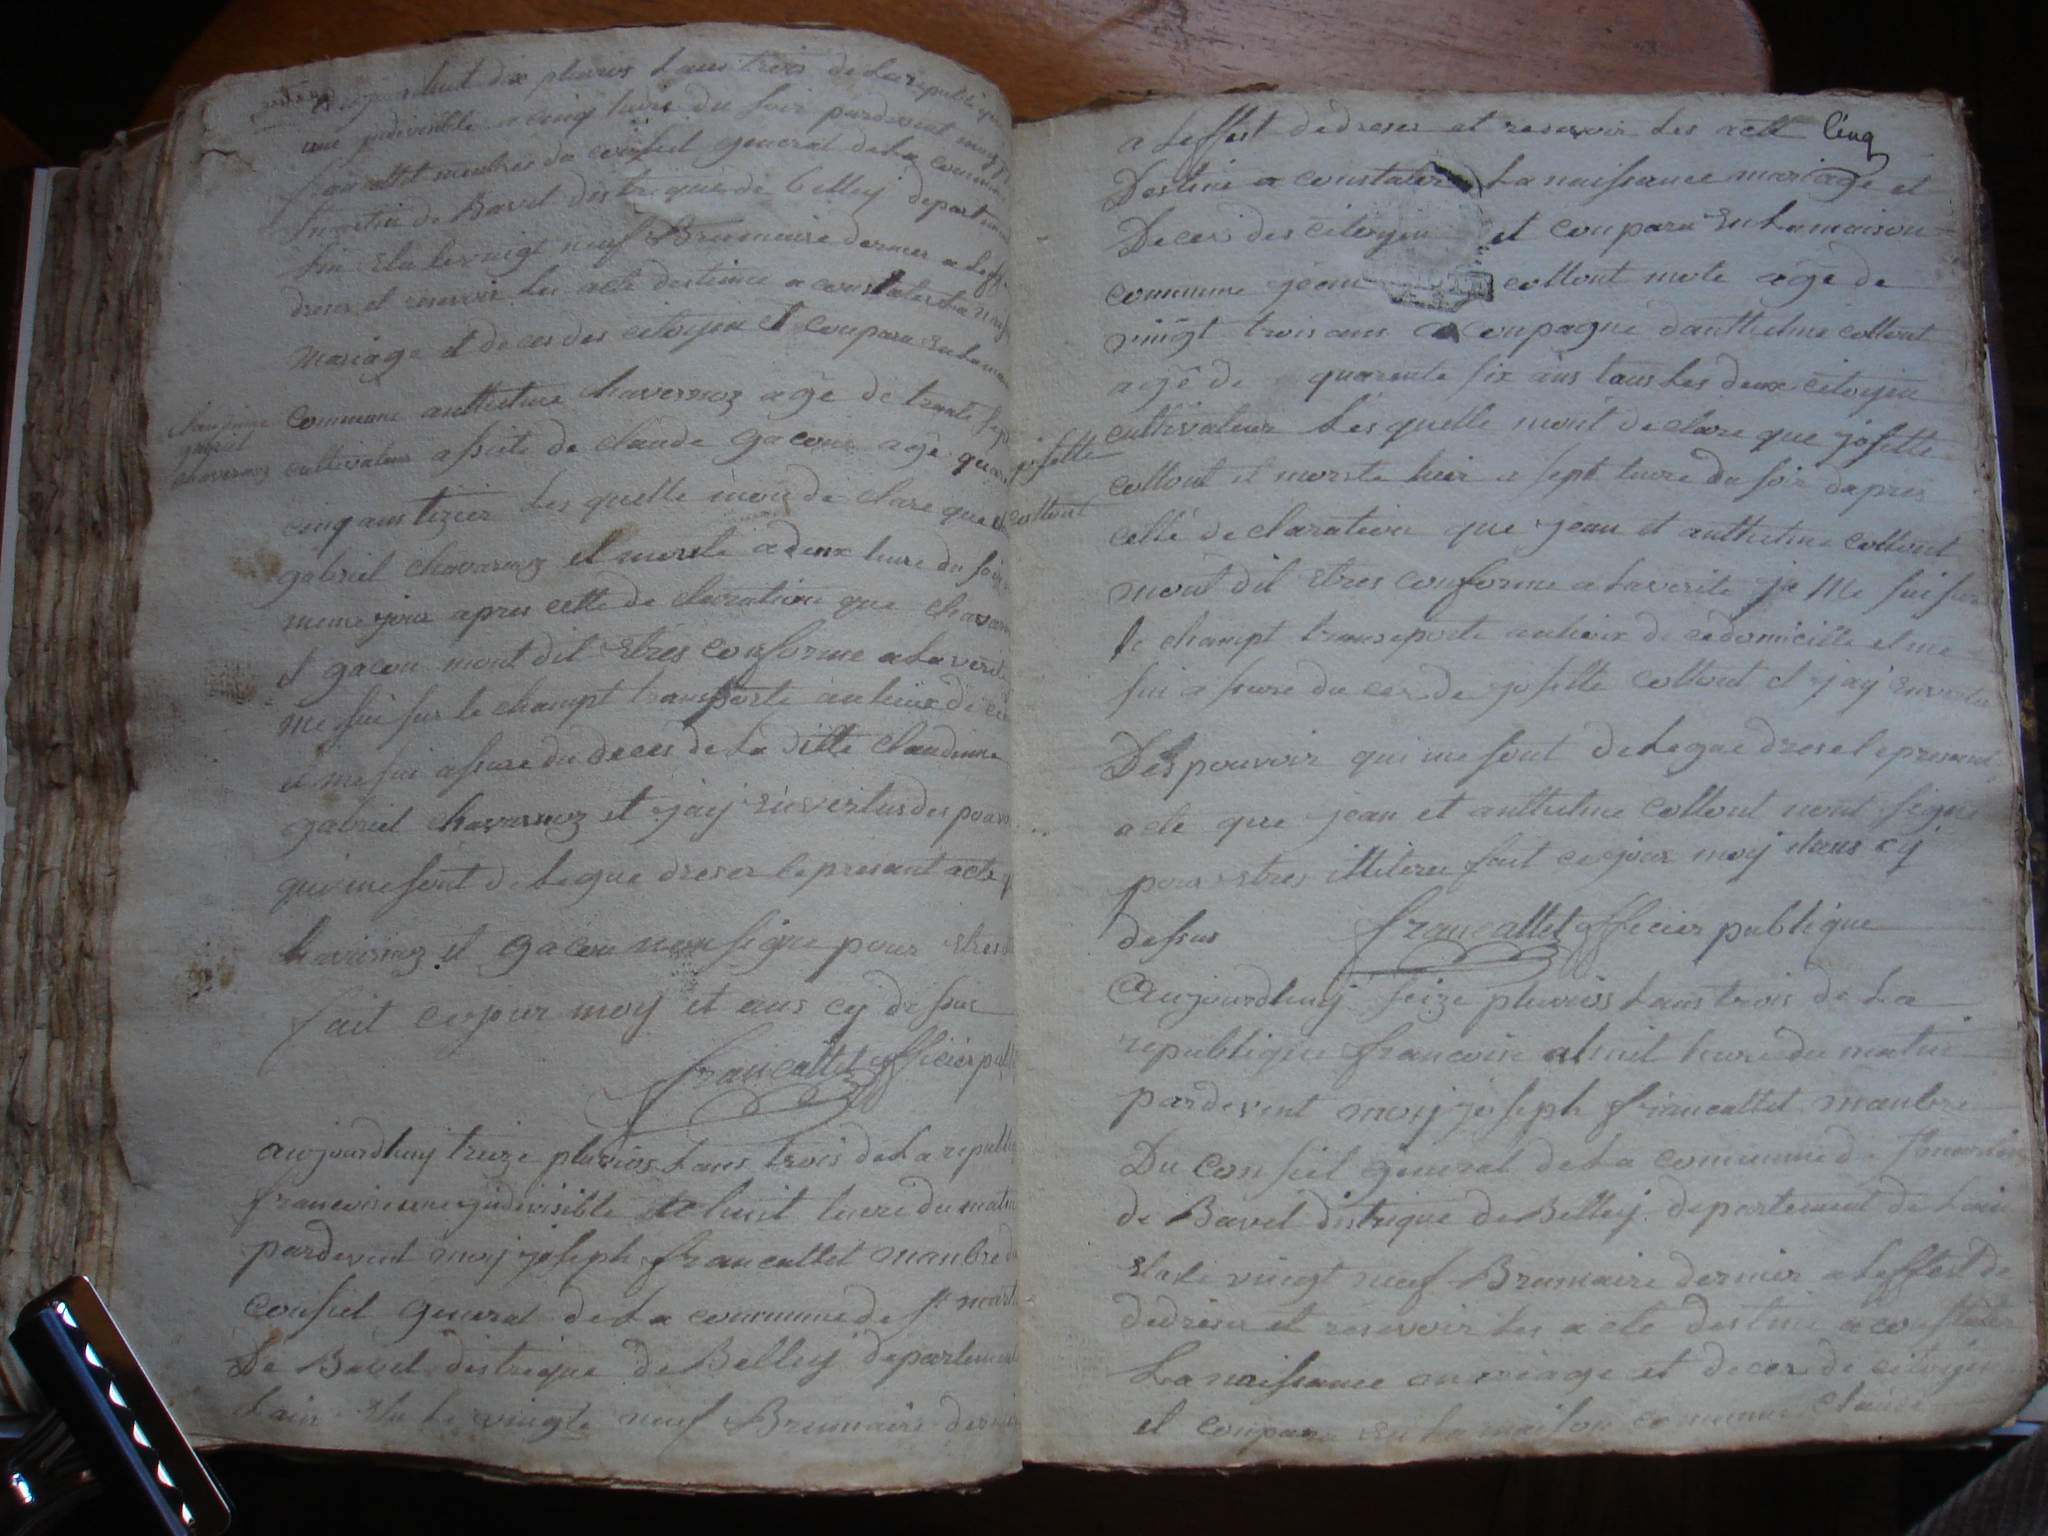 dix pluvios Lans trois de La republique
une jndivisible a cinq heure du soir pardevent moy
francallet menbres du conseil general de La commune
St martin de Bavel distrique de belley departement
Lin Elu le vingt neuf Brumaire dernier a Leff
dreser et resevoir Les acte destinne a constater La nais
mariage et deces des citoyen et conpara En La mai
commune anthelme Chavernoz agé de trante sept
Claudinne
gabriel
Chavernoz
cultivateur asisté de claude gacon agé qua
cinq ans tizier Les quelle mon de clare que
gabriel chavernoz et morte a deux heure du soir
meme jour apres cette de claration que chavar
et gacon mont dit Etres conforme a La verite
me sui sur le champt transporte au lieux de ce
et me sui asure du deces de La ditte Claudinne
gabriel chavernoz et jaij En vertus des pouvo
qui me sont de Legue dreser le presant acte q
chavernoz et gacon non signe pour Etres
fait ce jour moy et ans cy de sus
francallet officier pub
aujourdhuy treize pluvios Lans trois de La republi
francoise une jndivisible a huit heure du matin
pardevent moy joseph francallet manbre d
conseil general de La commune de St mart
De Bavel distrique de Belley departement
Lain Elu Le vingte neuf Brumaire dernie
a Leffest dedreser et resevoir Les acte
Cinq
Destiné a constater La naissance mariage et
Deces des citoyen et conparu En La maison
commune jean collout mote agé de
vingt trois ans acconpagne danthelme collout
agé de quarente six ans tous Les deux citoyen
cultivateur Les quelle mont de clare que josette
josette
collout
collout et morste hier a sept heure du soir dapres
cette de claration que jean et anthelme collout
mont dit Etres conforme a La verite je me sui sur
le champt transeporte au lieux de ce domicille et me
sui asure du ces de josette collout et jaij En vertu
Des pouvoir qui me sont de Legue dresé le presant
acte que jean et anthelme collout nont signe
pour Etres illiteré fait ce jour moy et ans cy
desus francallet officier publique
aujourdhuy seize pluvios Lans trois de La
republique francoise a huit heure du matin
pardevent moy joseph francallet manbre
Du conseil general de La commune de St martin
de Bavel distrique de Belley departement de Lain
Elu le vingt neuf Brumaire dernier a Leffest de
dedreser et resevoir Les acte destiné a constater
La naissance mariage et deces de citoyen
et conparu En La maison commune claude